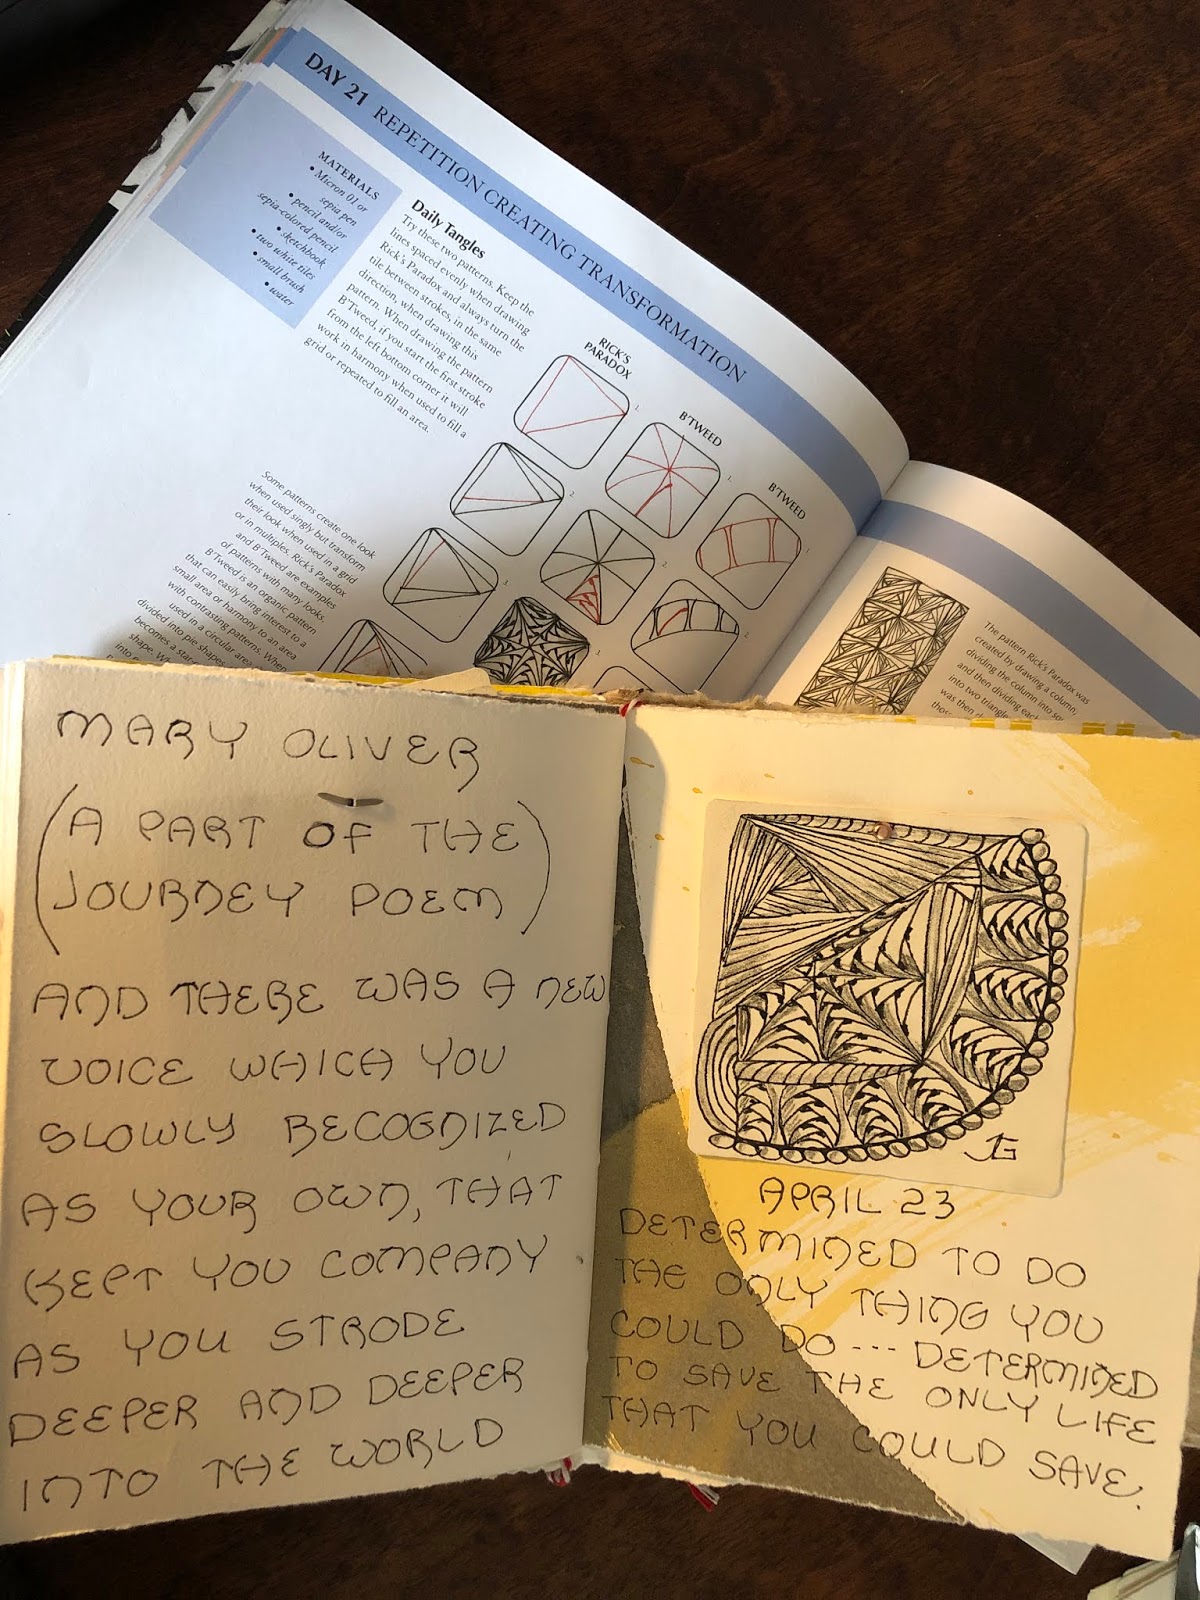 DAY 21 REPETITION CREATING TRANSFORMATION
MATERIALS
• Micron 01 or
sepia pen
• pencil and/or
sepia-colored pencil
• sketchbook
• two white tiles
• small brush
• water
Daily Tangles
Try these two patterns. Keep the
lines spaced evenly when drawing
Rick's Paradox and always turn the
tile between strokes, in the same
direction, when drawing this
pattern. When drawing the pattern
B'Tweed, if you start the first stroke
from the left bottom corner it will
work in harmony when used to fill a
grid or repeated to fill an area.
Some patterns create one look
when used singly but transform
their look when used in a grid
or in multiples. Rick's Paradox
and B'Tweed are examples
of patterns with many looks.
B'Tweed is an organic pattern
that can easily bring interest to a
small area or harmony to an area
with contrasting patterns. When
used in a circular area
divided into pie shapes
becomes a star
shape. W
into
RICK'S
PARADOX
1.
2.
3.
B'TWEED
1.
2.
3.
B'TWEED
1.
2.
The pattern Rick's Paradox was
created by drawing a column,
dividing the column into
and then dividing each
into two triangle
was then
thos
MARY OLIVER
(A PART OF THE
JOURNEY POEM)
AND THERE WAS A NEW
VOICE WHICH YOU
SLOWLY RECOGNIZED
AS YOUR OWN, THAT
KEPT YOU COMPANY
AS YOU STRODE
DEEPER AND DEEPER
INTO THE WORLD
JG
APRIL 23
DETERMINED TO DO
THE ONLY THING YOU
COULD DO --- DETERMINED
TO SAVE THE ONLY LIFE
THAT YOU COULD SAVE.